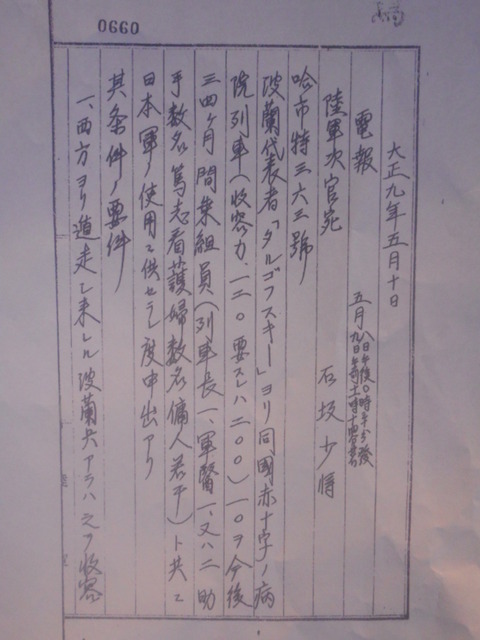 0660
大正九年五月十日
電報
五月八日午後〇時十分發
九日午前十一時十四分着
陸軍次官宛 石坂少将
哈市特三六三號
波蘭代表者「タルゴフスキー」ヨリ同國赤十字ノ病
院列車(收容力、一二〇要スレハ二〇〇)一〇ヲ今後
三四ケ月間乗組員(列車長一、軍醫一、又ハ二助
手數名篤志看護婦數名傭人若干)ト共ニ
日本軍ノ使用ニ供セラレ度申出アリ
其条件ノ要件
一、西方ヨリ遁走シ来レル波蘭兵アラハ之ヲ收容